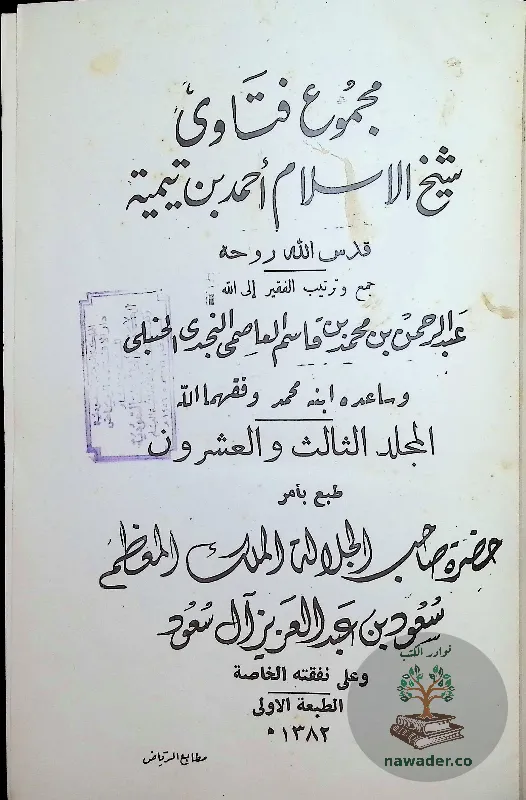 مجموع فتاوى
شيخ الاسلام أحمد بن تيمية
قدس الله روحه
جمع وترتيب الفقير إلى الله
عبد الرحمن بن محمد بن قاسم العاصمى النجدى الحنبلى
وساعده ابنه محمد وفقهما الله
المجلد الثالث والعشرون
طبع بأمر
حضرة صاحب الجلالة الملك المعظم
سعود بن عبد العزيز آل سعود
وعلى نفقته الخاصة
الطبعة الاولى
١٣٨٢ ه
مطابع الرياض
نوادر الكتب
nawader.co